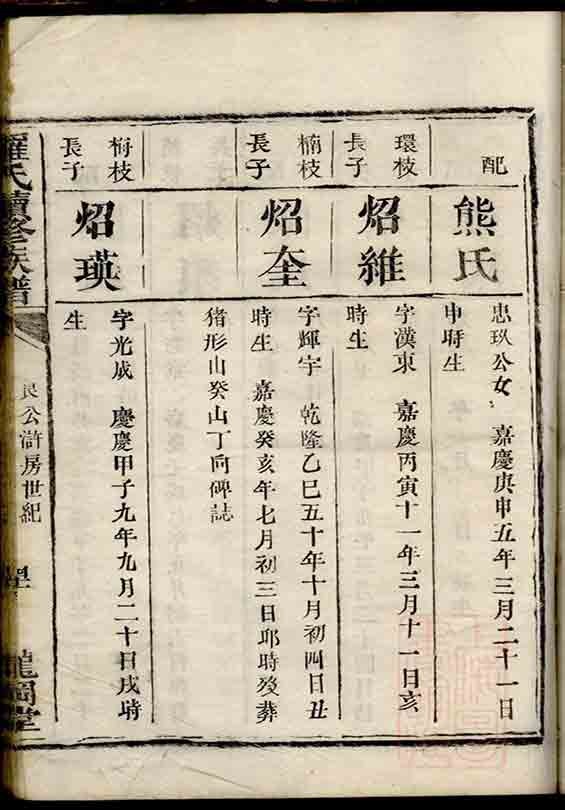 配
熊氏
忠玖公女 嘉慶庚申五年三月二十一日
申時生
環枝
長子
炤維
字漢東 嘉慶丙寅十一年三月十一日亥
時生
楠枝
長子
炤奎
字輝宇 乾隆乙巳五十年十月初四日丑
時生 嘉慶癸亥年七月初三日卯時歿葬
猪形山癸山丁向碑誌
栴枝
長子
炤瑛
字光成 慶慶甲子九年九月二十日戌時
生
羅氏續修族譜
良公滸房世紀
龍岡堂